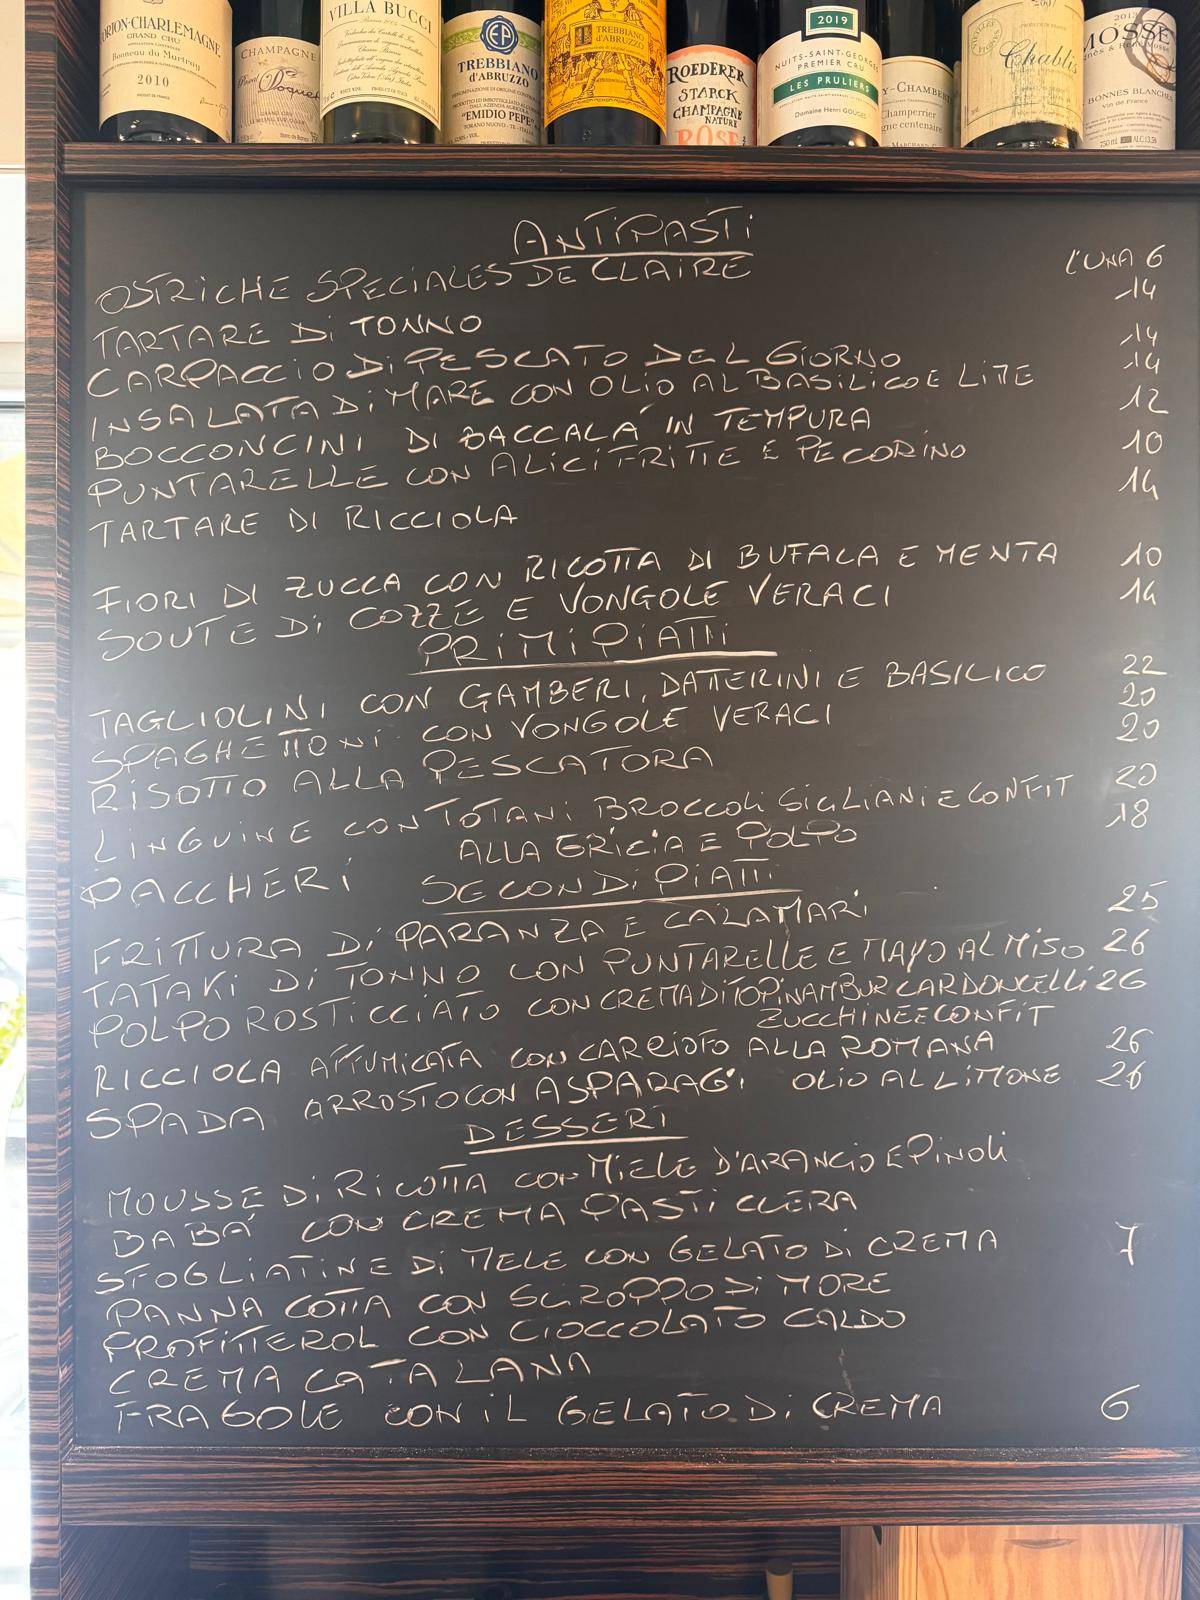 CORTON-CHARLEMAGNE
GRAND CRU
Bonneau du Martray
2010
CHAMPAGNE
GRAND CRU
VILLA BUCCI
TREBBIANO
d'ABRUZZO
"EMIDIO PEPE"
TORANO NUOVO - TE - ITALIA
TREBBIANO
d'ABRUZZO
ROEDERER
STARCK
CHAMPAGNE
NATURE
ROSÉ
2019
NUITS-SAINT-GEORGES
PREMIER CRU
LES PRULIERS
Domaine Henri GOUGES
Y-CHAMBERT
Champerrier
gne centenaire
Chablis
MOSSE
BONNES BLANCHES
Vin de France
750 ml ALC.13,5%
ANTIPASTI
OSTRICHE SPECIALES DE CLAIRE L'UNA 6
TARTARE DI TONNO 14
CARPACCIO DI PESCATO DEL GIORNO 14
INSALATA DI MARE CON OLIO AL BASILICO E LIME 14
BOCCONCINI DI BACCALA' IN TEMPURA 12
PUNTARELLE CON ALICI FRITTE E PECORINO 10
TARTARE DI RICCIOLA 14
FIORI DI ZUCCA CON RICOTTA DI BUFALA E MENTA 10
SOUTE DI COZZE E VONGOLE VERACI 14
PRIMI PIATTI
TAGLIOLINI CON GAMBERI, DATTERINI E BASILICO 22
SPAGHETTONI CON VONGOLE VERACI 20
RISOTTO ALLA PESCATORA 20
LINGUINE CON TOTANI BROCCOLI SICILIANI E CONFIT 20
PACCHERI ALLA GRICIA E POLPO 18
SECONDI PIATTI
FRITTURA DI PARANZA E CALAMARI 25
TATAKI DI TONNO CON PUNTARELLE E MAYO AL MISO 26
POLPO ROSTICCIATO CON CREMA DI TOPINAMBUR CARDONCELLI 26
ZUCCHINE E CONFIT
RICCIOLA AFFUMICATA CON CARCIOFO ALLA ROMANA 26
SPADA ARROSTO CON ASPARAGI OLIO AL LIMONE 26
DESSERT
MOUSSE DI RICOTTA CON MIELE D'ARANCIO E PINOLI
BABA' CON CREMA PASTICCERA
SFOGLIATINE DI MELE CON GELATO DI CREMA 7
PANNA COTTA CON SCIROPPO DI MORE
PROFITTEROL CON CIOCCOLATO CALDO
CREMA CATALANA
FRAGOLE CON IL GELATO DI CREMA 6